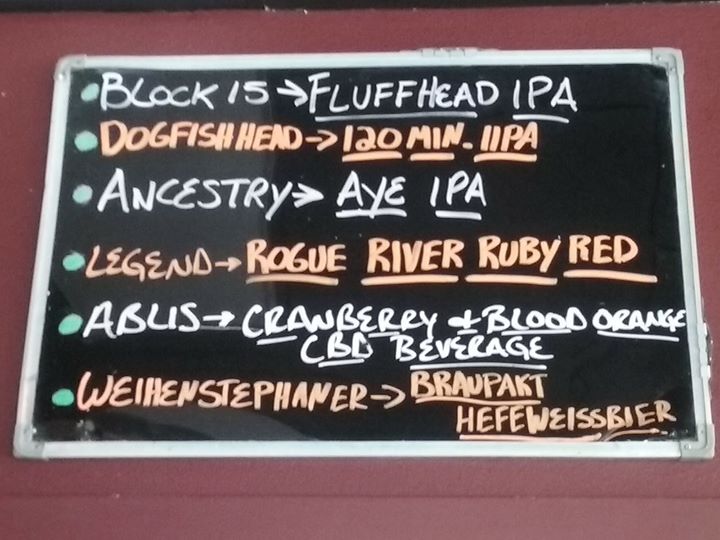 • BLOCK 15 → FLUFFHEAD IPA
• DOGFISH HEAD → 120 MIN. IIPA
• ANCESTRY → AYE IPA
• LEGEND → ROGUE RIVER RUBY RED
• ABLIS → CRANBERRY + BLOOD ORANGE
CBD BEVERAGE
• WEIHENSTEPHANER → BRAUPAKT
HEFEWEISSBIER